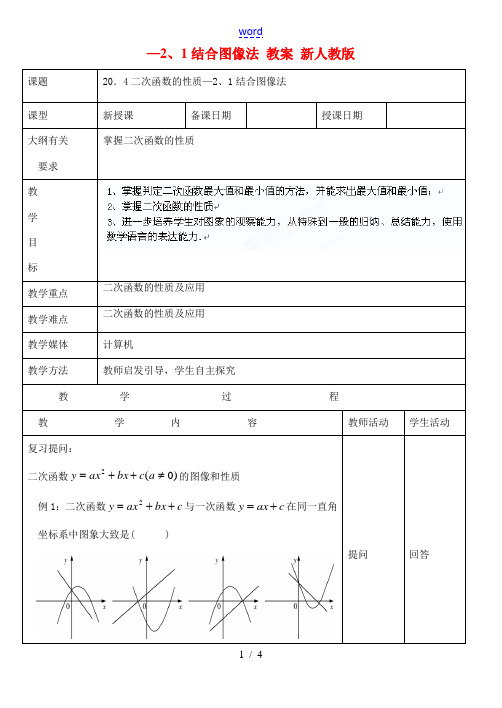 word
—2、1结合图像法 教案 新人教版
课题 20．4二次函数的性质—2、1结合图像法
课型 新授课 备课日期 授课日期
大纲有关 掌握二次函数的性质
要求
教
学
目
标
1、掌握判定二次函数最大值和最小值的方法，并能求出最大值和最小值；↵
2、掌握二次函数的性质↵
3、进一步培养学生对图象的观察能力，从特殊到一般的归纳、总结能力，使用
数学语言的表达能力.↵
教学重点 二次函数的性质及应用
教学难点 二次函数的性质及应用
教学媒体 计算机
教学方法 教师启发引导，学生自主探究
教 学 过 程
教 学 内 容 教师活动 学生活动
复习提问：
二次函数y = ax² + bx + c(a ≠ 0)的图像和性质
例1：二次函数y = ax² + bx + c与一次函数y = ax + c在同一直角
坐标系中图象大致是( )
提问 回答
y y y y
0 x 0 x 0 x 0 x
1 / 4